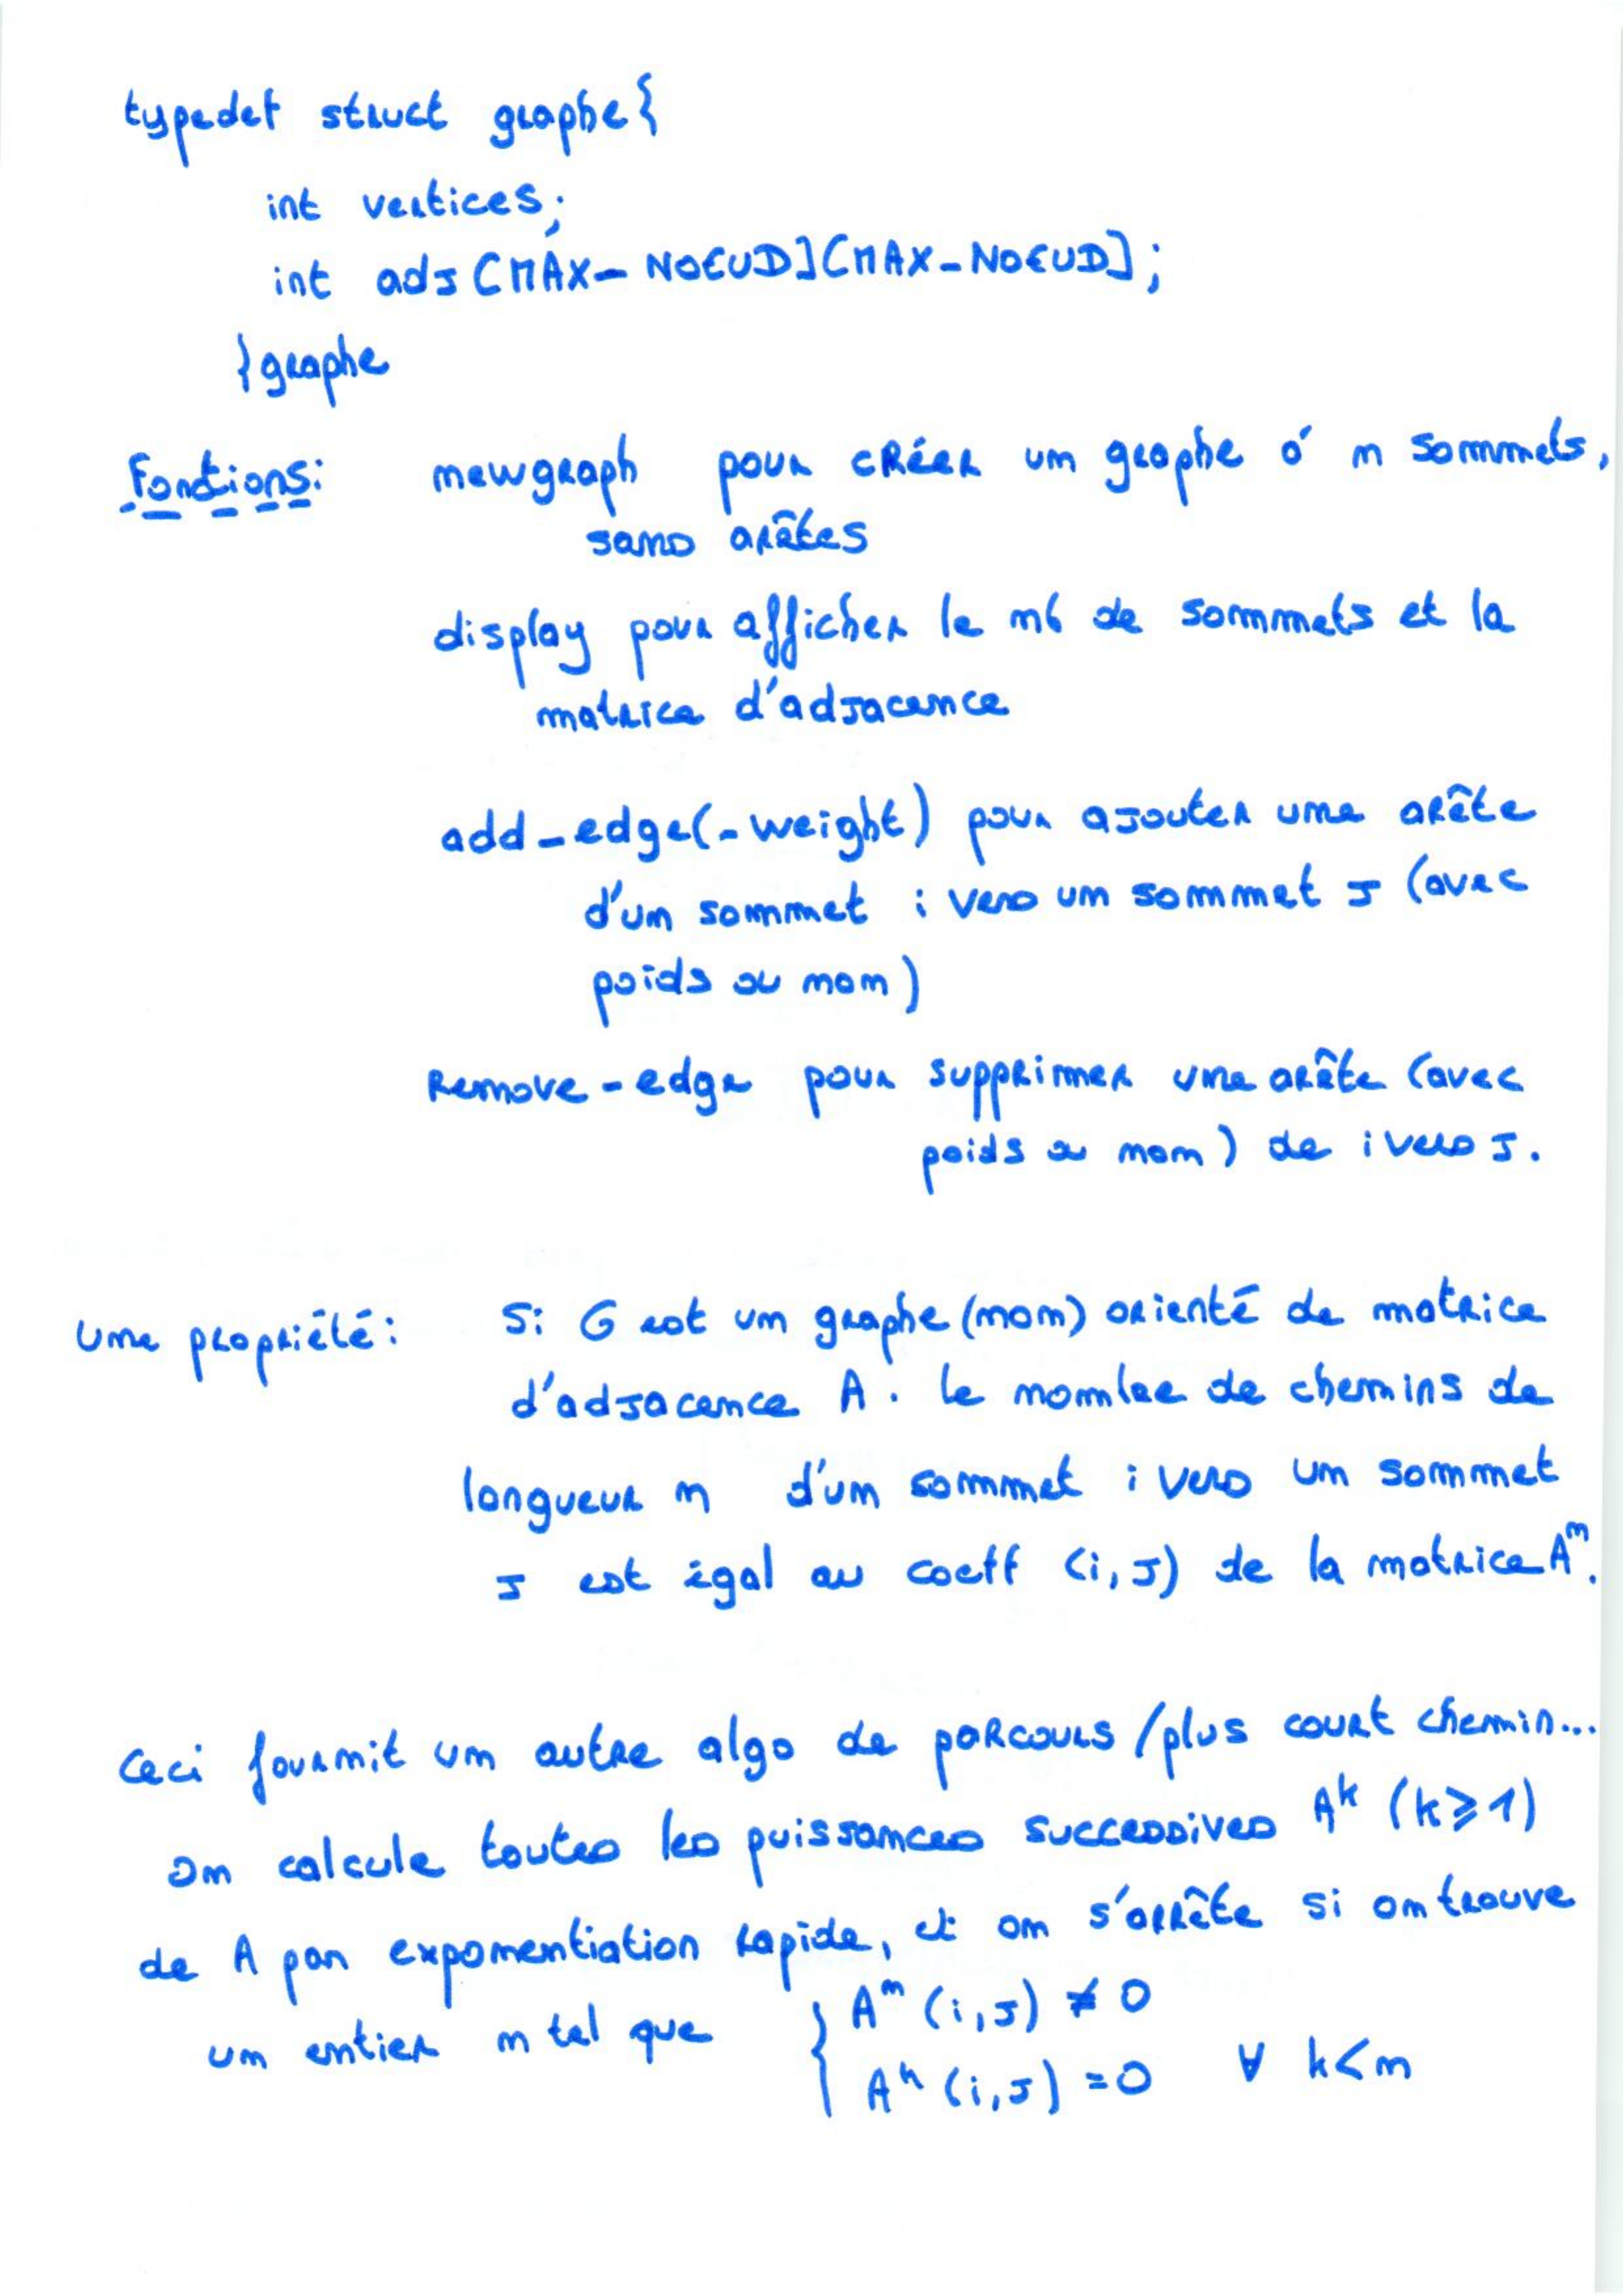 typedef struct graphe{
int vertices;
int adj[MAX_NOEUD][MAX_NOEUD];
}graphe
Fonctions: newgraph pour créer un graphe à n sommets,
sans arêtes
display pour afficher le nb de sommets et la
matrice d'adjacence
add_edge(_weight) pour ajouter une arête
d'un sommet i vers un sommet j (avec
poids ou non)
Remove_edge pour supprimer une arête (avec
poids ou non) de i vers j.
Une propriété: Si G est un graphe (non) orienté de matrice
d'adjacence A. Le nombre de chemins de
longueur n d'un sommet i vers un sommet
j est égal au coeff (i,j) de la matrice Aⁿ.
Ceci fournit un autre algo de parcours/plus court chemin...
On calcule toutes les puissances successives Aᵏ (k⩾1)
de A par exponentiation rapide, et on s'arrête si on trouve
un entier n tel que { Aⁿ(i,j) ≠ 0
Aᵏ(i,j) = 0 ∀ k<n